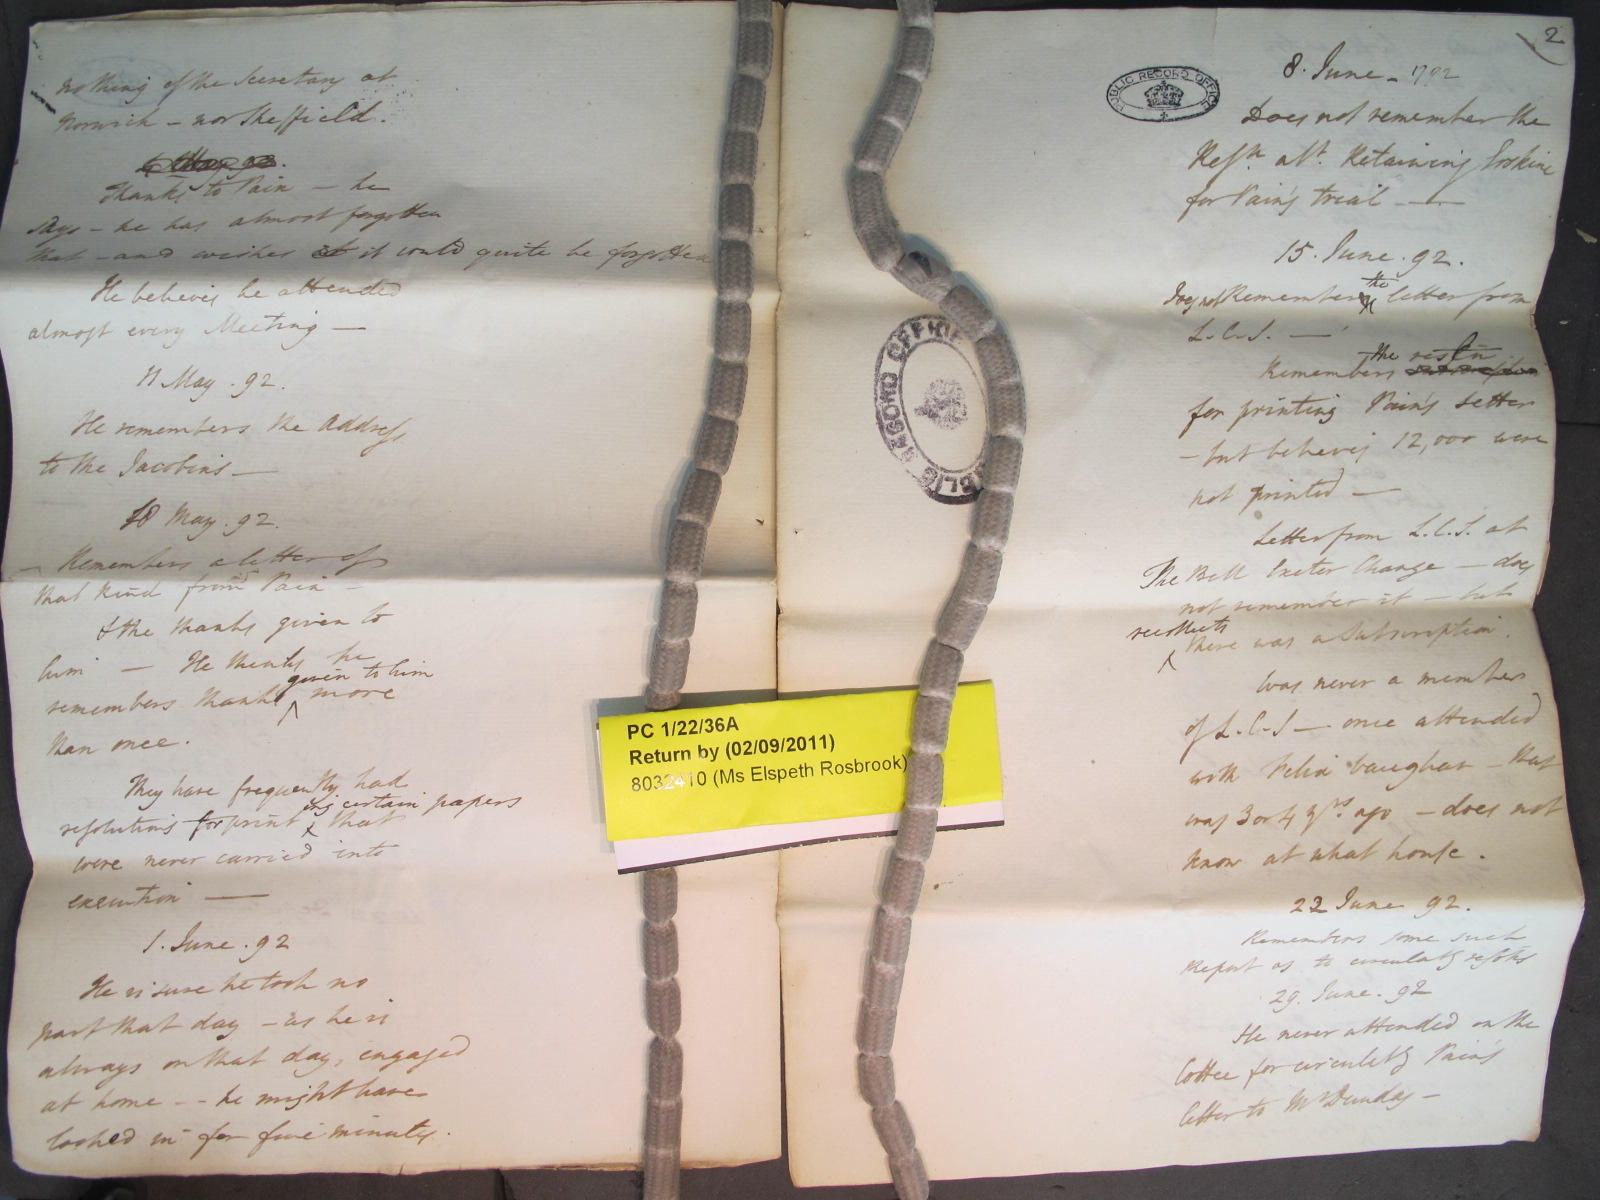 nothing of the Secretary at
Norwich – nor Sheffield.
Thanks to Pain – he
says – he has almost forgotten
that – and wishes it could quite be forgotten
He believes he attended
almost every Meeting –
11 May . 92.
He remembers the Address
to the Jacobins –
18 May . 92.
– Remembers a letter of
that kind from Pain –
& the thanks given to
him – He thinks he
given to him
remembers thanks ^ more
than once.
They have frequently had
ing certain papers
resolutions for print ^ that
were never carried into
execution –
1. June . 92
He is sure he took no
part that day – as he is
always on that day, engaged
at home – - he might have
looked in for five minutes.
2
PUBLIC RECORD OFFICE
8. June – 1792
Does not remember the
Resn. abt. Retaining Erskine
for Pain's trial –
15. June . 92.
the
Does not Remember ^ letter from
L.C.S. –
the resln
Remembers
for printing Pain's Letter
– but believes 12,000 were
not printed –
Letter from L.C.S. at
The Bell Exeter Change – does
not remember it – but
recollects
^ there was a Subscription.
Was never a member
of L.C.S – once attended
with Felix Vaughan – that
was 3 or 4 yrs. ago – does not
know at what house.
22 June 92.
Remembers some such
Report as to circulatg reslns
29. June . 92
He never attended on the
Cottee for circulatg Pain's
letter to Mr Dundas –
PUBLIC RECORD OFFICE
PC 1/22/36A
Return by (02/09/2011)
8032410 (Ms Elspeth Rosbrook)